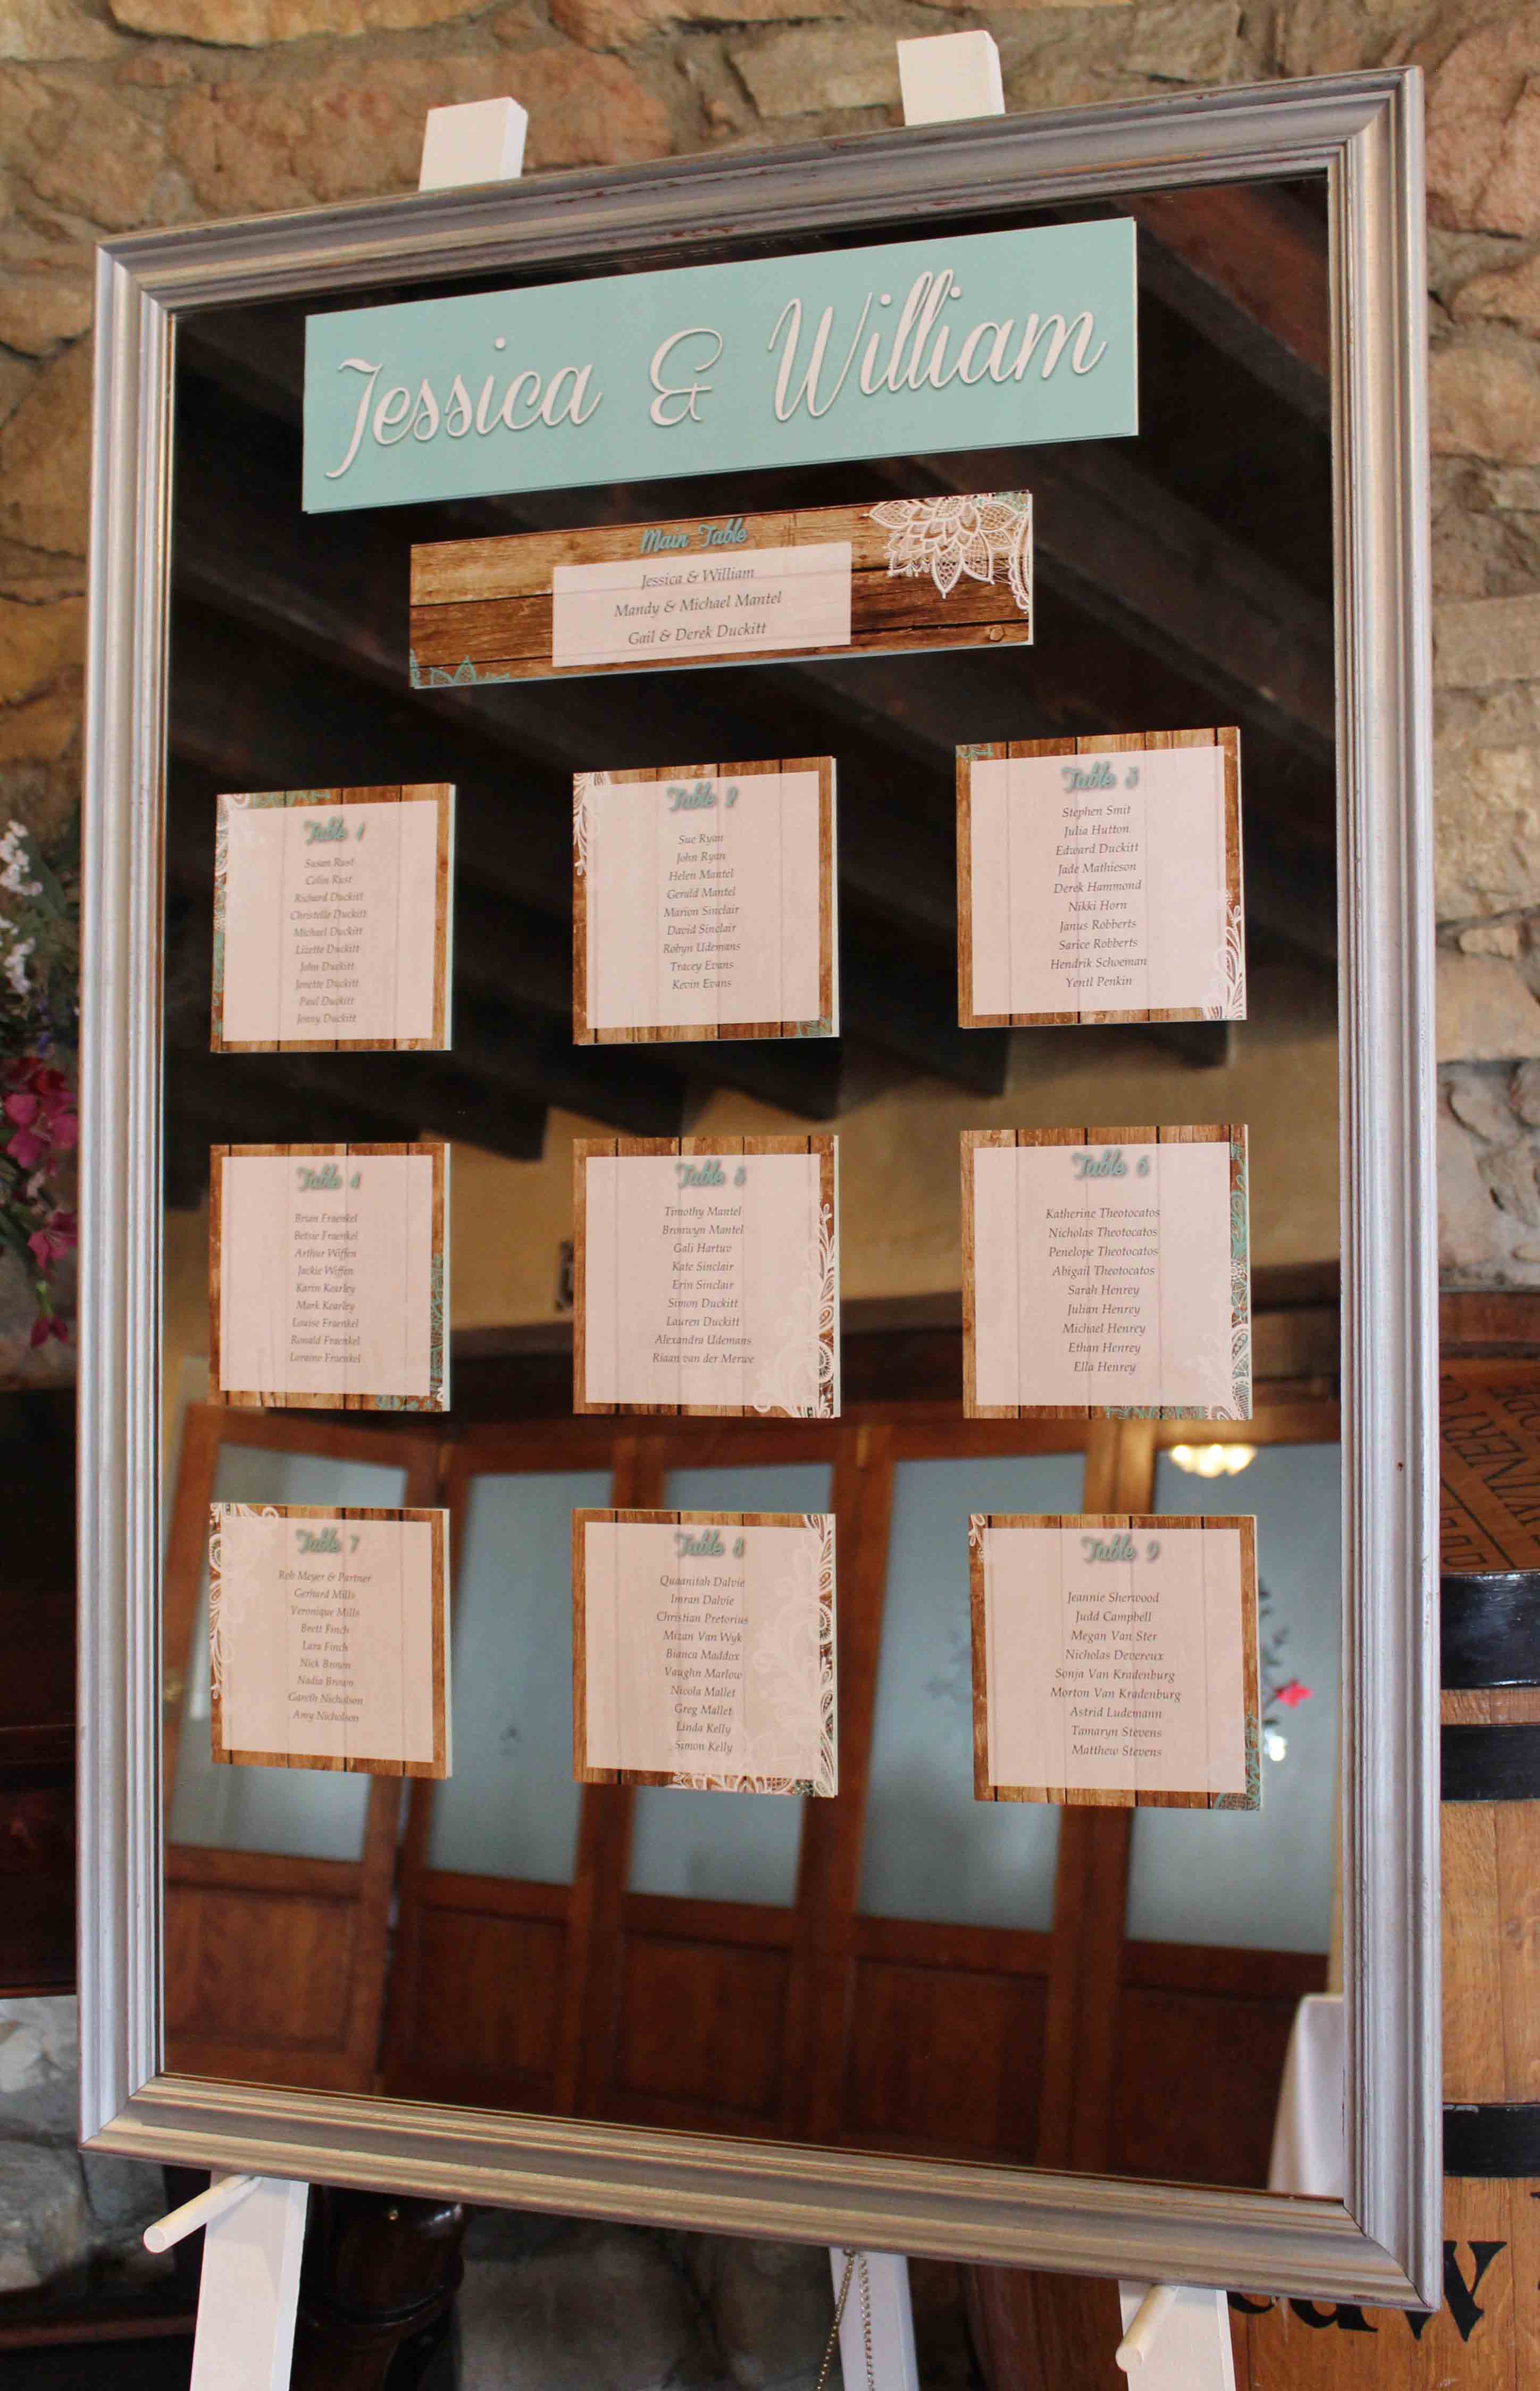 Jessica & William
Main Table
Jessica & William
Mandy & Michael Mantel
Gail & Derek Duckitt
Table 1
Susan Rust
Colin Rust
Richard Duckitt
Christelle Duckitt
Michael Duckitt
Lizette Duckitt
John Duckitt
Jenette Duckitt
Paul Duckitt
Jonny Duckitt
Table 2
Sue Ryan
John Ryan
Helen Mantel
Gerald Mantel
Marion Sinclair
David Sinclair
Robyn Udemans
Tracey Evans
Kevin Evans
Table 3
Stephen Smit
Julia Hutton
Edward Duckitt
Jade Mathieson
Derek Hammond
Nikki Horn
Janus Robberts
Sarice Robberts
Hendrik Schoeman
Yentl Penkin
Table 4
Brian Fraenkel
Betsie Fraenkel
Arthur Wiffen
Jackie Wiffen
Karin Kearley
Mark Kearley
Louise Fraenkel
Ronald Fraenkel
Loraine Fraenkel
Table 5
Timothy Mantel
Bronwyn Mantel
Gali Hartuv
Kate Sinclair
Erin Sinclair
Simon Duckitt
Lauren Duckitt
Alexandra Udemans
Riaan van der Merwe
Table 6
Katherine Theotocatos
Nicholas Theotocatos
Penelope Theotocatos
Abigail Theotocatos
Sarah Henrey
Julian Henrey
Michael Henrey
Ethan Henrey
Ella Henrey
Table 7
Rob Meyer & Partner
Gerhard Mills
Veronique Mills
Brett Finch
Lara Finch
Nick Brown
Nadia Brown
Gareth Nicholson
Amy Nicholson
Table 8
Quaanitah Dalvie
Imran Dalvie
Christian Pretorius
Mizan Van Wyk
Bianca Maddox
Vaughn Marlow
Nicola Mallet
Greg Mallet
Linda Kelly
Simon Kelly
Table 9
Jeannie Sherwood
Judd Campbell
Megan Van Ster
Nicholas Devereux
Sonja Van Kradenburg
Morton Van Kradenburg
Astrid Ludemann
Tamaryn Stevens
Matthew Stevens